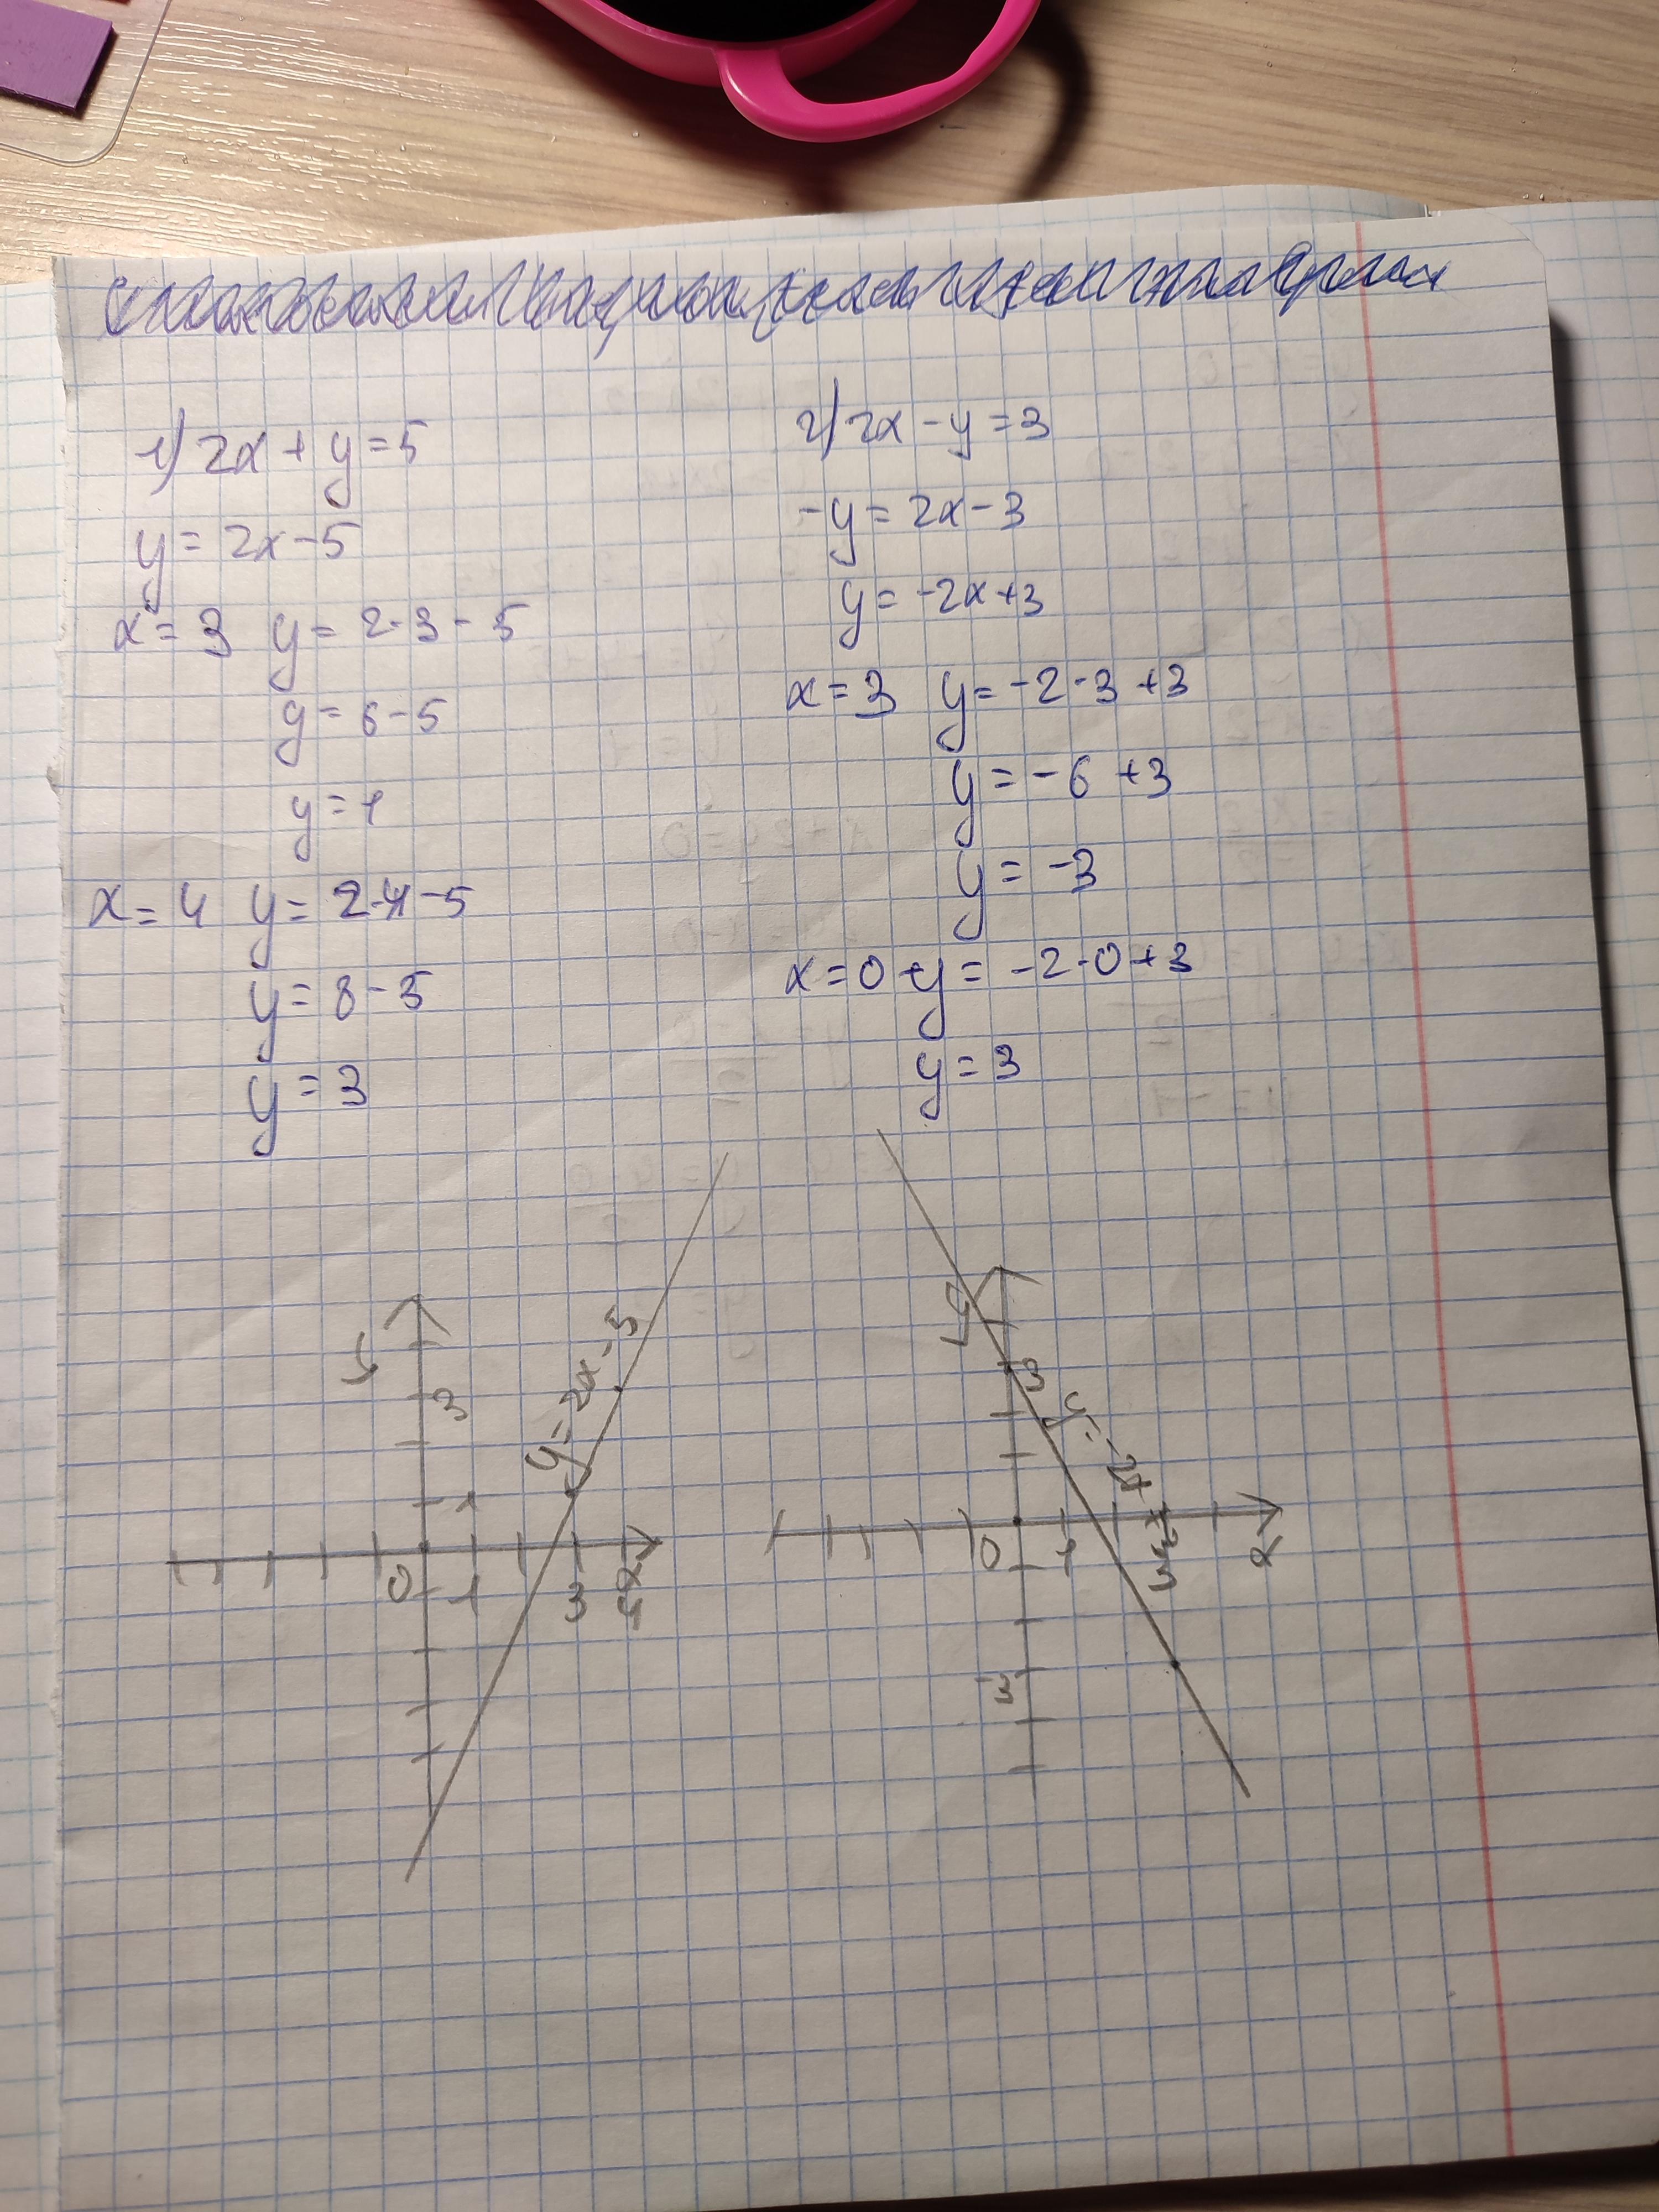 1) 2x + y = 5
y = 2x - 5
x = 3 y = 2·3 - 5
y = 6 - 5
y = 1
x = 4 y = 2·4 - 5
y = 8 - 5
y = 3
2) 2x - y = 3
-y = 2x - 3
y = -2x + 3
x = 3 y = -2·3 + 3
y = -6 + 3
y = -3
x = 0 y = -2·0 + 3
y = 3
y
3
y = 2x - 5
1
0 1 3 4 x
y
3
y = -2x + 3
0 1 3 x
-3